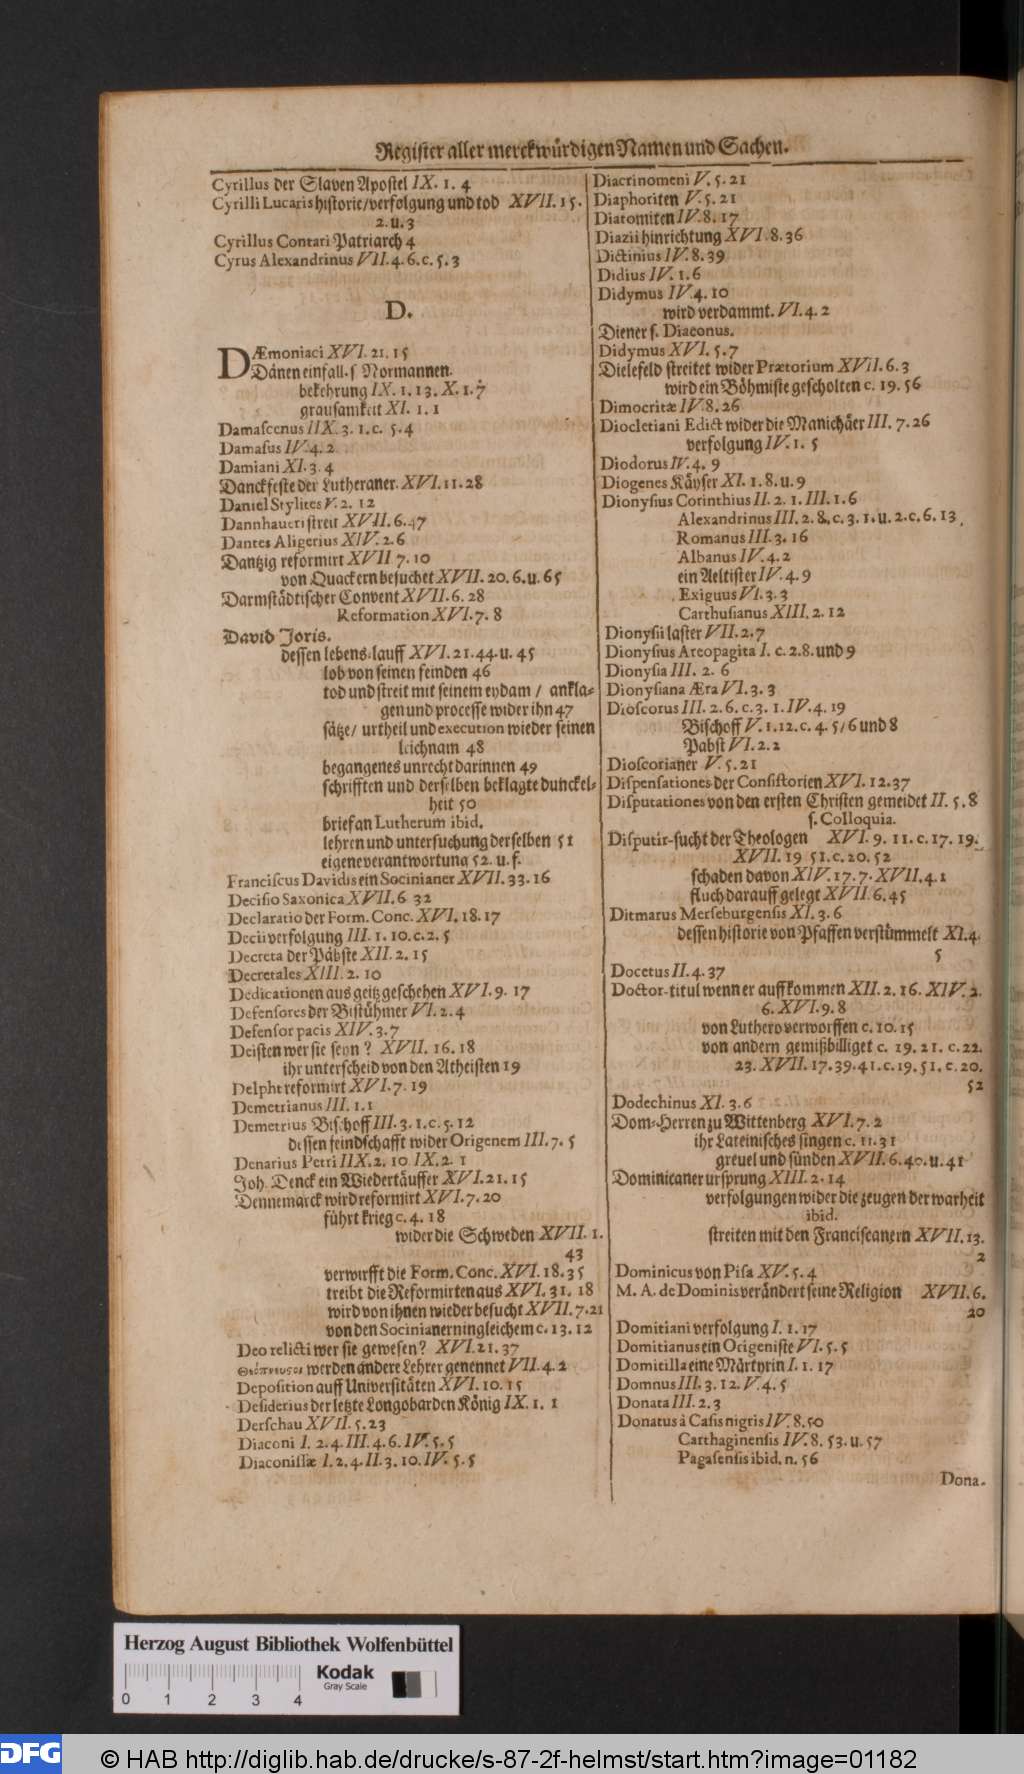 Register aller merckwürdigen Namen und Sachen.
Cyrillus der Slaven Apostel IX. 1. 4
Cyrilli Lucaris historie/verfolgung und tod XVII. 15.
2. u. 3
Cyrillus Contari Patriarch 4
Cyrus Alexandrinus VII. 4. 6. c. 5. 3
D.
DÆmoniaci XVI. 21. 15
Dänen einfall. s Normannen.
bekehrung IX. 1. 13. X. 1. 7
grausamkeit XI. 1. 1
Damascenus IIX. 3. 1. c. 5. 4
Damasus IV. 4. 2
Damiani XI. 3. 4
Danckfeste der Lutheraner. XVI. 11. 28
Daniel Stylites V. 2. 12
Dannhaueri streit XVII. 6. 47
Dantes Aligerius XIV. 2. 6
Dantzig reformirt XVII 7. 10
von Quackern besuchet XVII. 20. 6. u. 65
Darmstädtischer Convent XVII. 6. 28
Reformation XVI. 7. 8
David Joris.
dessen lebens-lauff XVI. 21. 44. u. 45
lob von seinen feinden 46
tod und streit mit seinem eydam / ankla-
gen und processe wider ihn 47
sätze/ urtheil und execution wieder seinen
leichnam 48
begangenes unrecht darinnen 49
schrifften und derselben beklagte dunckel-
heit 50
brief an Lutherum ibid.
lehren und untersuchung derselben 51
eigene verantwortung 52. u. f.
Franciscus Davidis ein Socinianer XVII. 33. 16
Decisio Saxonica XVII. 6 32
Declaratio der Form. Conc. XVI. 18. 17
Decii verfolgung III. 1. 10. c. 2. 5
Decreta der Päbste XII. 2. 15
Decretales XIII. 2. 10
Dedicationen aus geitz geschehen XVI. 9. 17
Defensores der Bistühmer VI. 2. 4
Defensor pacis XIV. 3. 7
Deisten wer sie seyn ? XVII. 16. 18
ihr unterscheid von den Atheisten 19
Delpht reformirt XVI. 7. 19
Demetrianus III. 1. 1
Demetrius Bischoff III. 3. 1. c. 5. 12
dessen feindschafft wider Origenem III. 7. 5
Denarius Petri IIX. 2. 10 IX. 2. 1
Joh. Denck ein Wiedertäuffer XVI. 21. 15
Dennemarck wird reformirt XVI. 7. 20
führt krieg c. 4. 18
wider die Schweden XVII. 1.
43
verwirfft die Form. Conc. XVI. 18. 35
treibt die Reformirten aus XVI. 31. 18
wird von ihnen wieder besucht XVII. 7. 21
von den Socinianern ingleichem c. 13. 12
Deo relicti wer sie gewesen ? XVI. 21. 37
werden andere Lehrer genennet VII. 4. 2
Deposition auff Universitäten XVI. 10. 15
Desiderius der letzte Longobarden König IX. 1. 1
Derschau XVII. 5. 23
Diaconi I. 2. 4. III. 4. 6. IV. 5. 5
Diaconissæ I. 2. 4. II. 3. 10. IV. 5. 5
Diacrinomeni V. 5. 21
Diaphoriten V. 5. 21
Diatomiten IV. 8. 17
Diazii hinrichtung XVI. 8. 36
Dictinius IV. 8. 39
Didius IV. 1. 6
Didymus IV. 4. 10
wird verdammt. VI. 4. 2
Diener s. Diaconus.
Didymus XVI. 5. 7
Dielefeld streitet wider Prætorium XVII. 6. 3
wird ein Böhmiste gescholten c. 19. 56
Dimocritæ IV. 8. 26
Diocletiani Edict wider die Manichäer III. 7. 26
verfolgung IV. 1. 5
Diodorus IV. 4. 9
Diogenes Käyser XI. 1. 8. u. 9
Dionysius Corinthius II. 2. 1. III. 1. 6
Alexandrinus III. 2. 8. c. 3. 1. u. 2. c. 6. 13.
Romanus III. 3. 16
Albanus IV. 4. 2
ein Aeltister IV. 4. 9
Exiguus VI. 3. 3
Carthusianus XIII. 2. 12
Dionysii laster VII. 2. 7
Dionysius Areopagita I. c. 2. 8. und 9
Dionysia III. 2. 6
Dionysiana Æra VI. 3. 3
Dioscorus III. 2. 6. c. 3. 1. IV. 4. 19
Bischoff V. 1. 12. c. 4. 5/ 6 und 8
Pabst VI. 2. 2
Dioscorianer V. 5. 21
Dispensationes der Consistorien XVI. 12. 37
Disputationes von den ersten Christen gemeidet II. 5. 8
s. Colloquia.
Disputir-sucht der Theologen XVI. 9. 11. c. 17. 19.
XVII. 19 51. c. 20. 52
schaden davon XIV. 17. 7. XVII. 4. 1
fluch darauff gelegt XVII. 6. 45
Ditmarus Merseburgensis XI. 3. 6
dessen historie von Pfaffen verstümmelt XI. 4.
5
Docetus II. 4. 37
Doctor-titul wenn er auffkommen XII. 2. 16. XIV. 2.
6. XVI. 9. 8
von Luthero verworffen c. 10. 15
von andern gemißbilliget c. 19. 21. c. 22.
23. XVII. 17. 39. 41. c. 19. 51. c. 20.
52
Dodechinus XI. 3. 6
Dom-Herren zu Wittenberg XVI. 7. 2
ihr Lateinisches singen c. 11. 31
greuel und sünden XVII. 6. 40. u. 41
Dominicaner ursprung XIII. 2. 14
verfolgungen wider die zeugen der warheit
ibid.
streiten mit den Franciscanern XVII. 13.
2
Dominicus von Pisa XV. 5. 4
M. A. de Dominis verändert seine Religion XVII. 6.
20
Domitiani verfolgung I. 1. 17
Domitianus ein Origeniste VI. 5. 5
Domitilla eine Märtyrin I. 1. 17
Domnus III. 3. 12. V. 4. 5
Donata III. 2. 3
Donatus à Casis nigris IV. 8. 50
Carthaginensis IV. 8. 53. u. 57
Pagasensis ibid. n. 56
Dona-
Herzog August Bibliothek Wolfenbüttel
Kodak
Gray Scale
0 1 2 3 4
DFG © HAB http://diglib.hab.de/drucke/s-87-2f-helmst/start.htm?image=01182